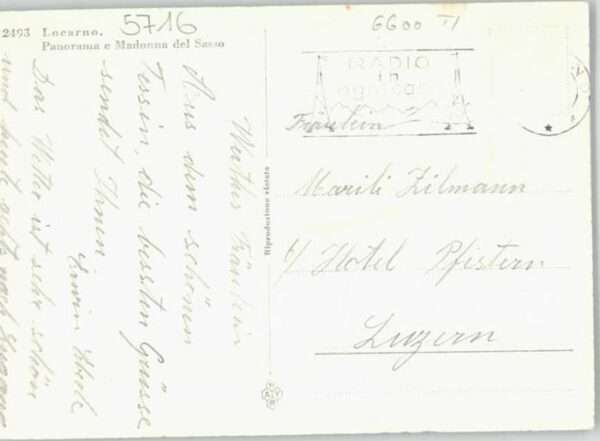 2493 Locarno.
Panorama e Madonna del Sasso
5716
6600 TI
RADIO
in
ogni casa
Werther Fräulein
Aus dem schönen
Tessin, die besten Grüsse
sendet Ihnen
Erwin
Das Wetter ist sehr schön
und heute geht's nach Lugano
Riproduzione vietata
Fräulein
Marili Zilmann
b/ Hotel Pfistern
Luzern